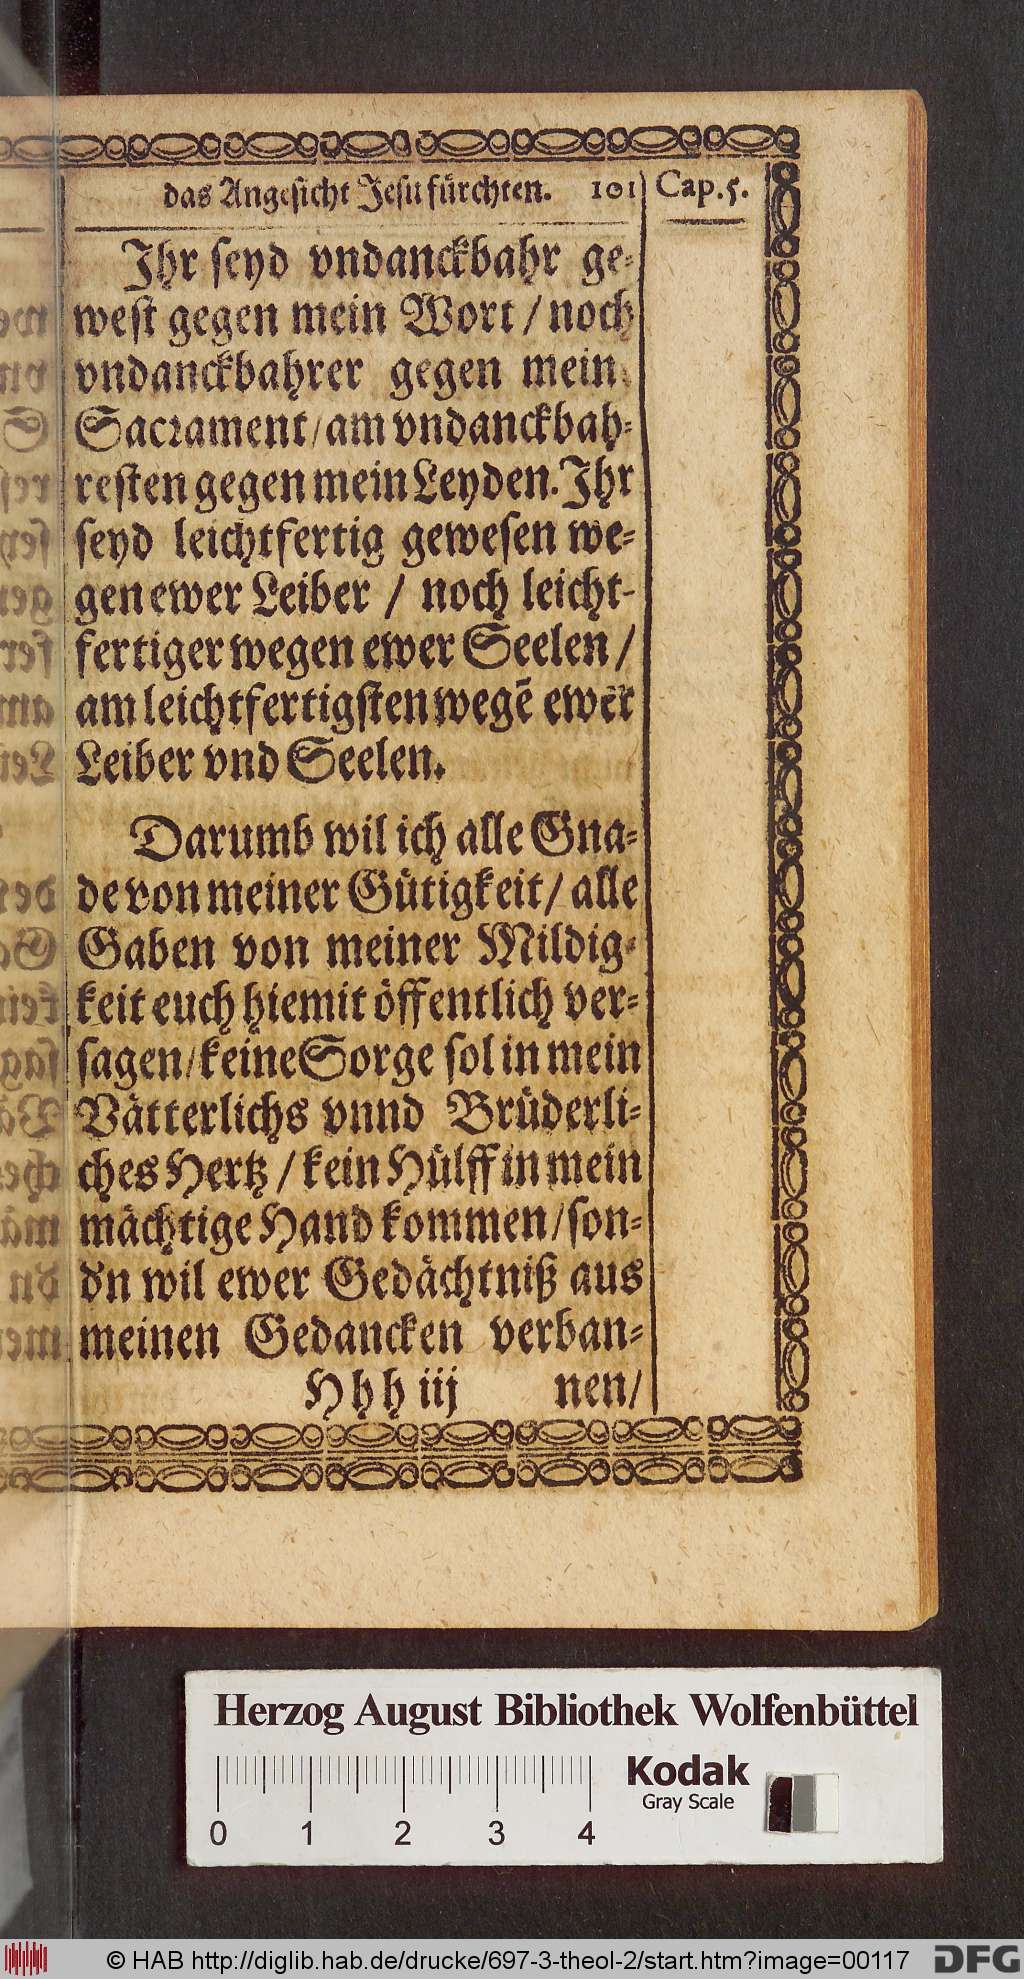 das Angesicht Jesu fürchten. 101 Cap. 5.
Ihr seyd vndanckbahr ge-
west gegen mein Wort / noch
vndanckbahrer gegen mein
Sacrament / am vndanckbah-
resten gegen mein Leyden. Ihr
seyd leichtfertig gewesen we-
gen ewer Leiber / noch leicht-
fertiger wegen ewer Seelen /
am leichtfertigsten wegẽ ewer
Leiber vnd Seelen.
Darumb wil ich alle Gna-
de von meiner Gütigkeit / alle
Gaben von meiner Mildig-
keit euch hiemit öffentlich ver-
sagen / keine Sorge sol in mein
Vätterlichs vnnd Brüderli-
ches Hertz / kein Hülff in mein
mächtige Hand kommen / son-
dn wil ewer Gedächtniß aus
meinen Gedancken verban-
Hhh iij nen /
Herzog August Bibliothek Wolfenbüttel
Kodak
Gray Scale
0 1 2 3 4
© HAB http://diglib.hab.de/drucke/697-3-theol-2/start.htm?image=00117 DFG